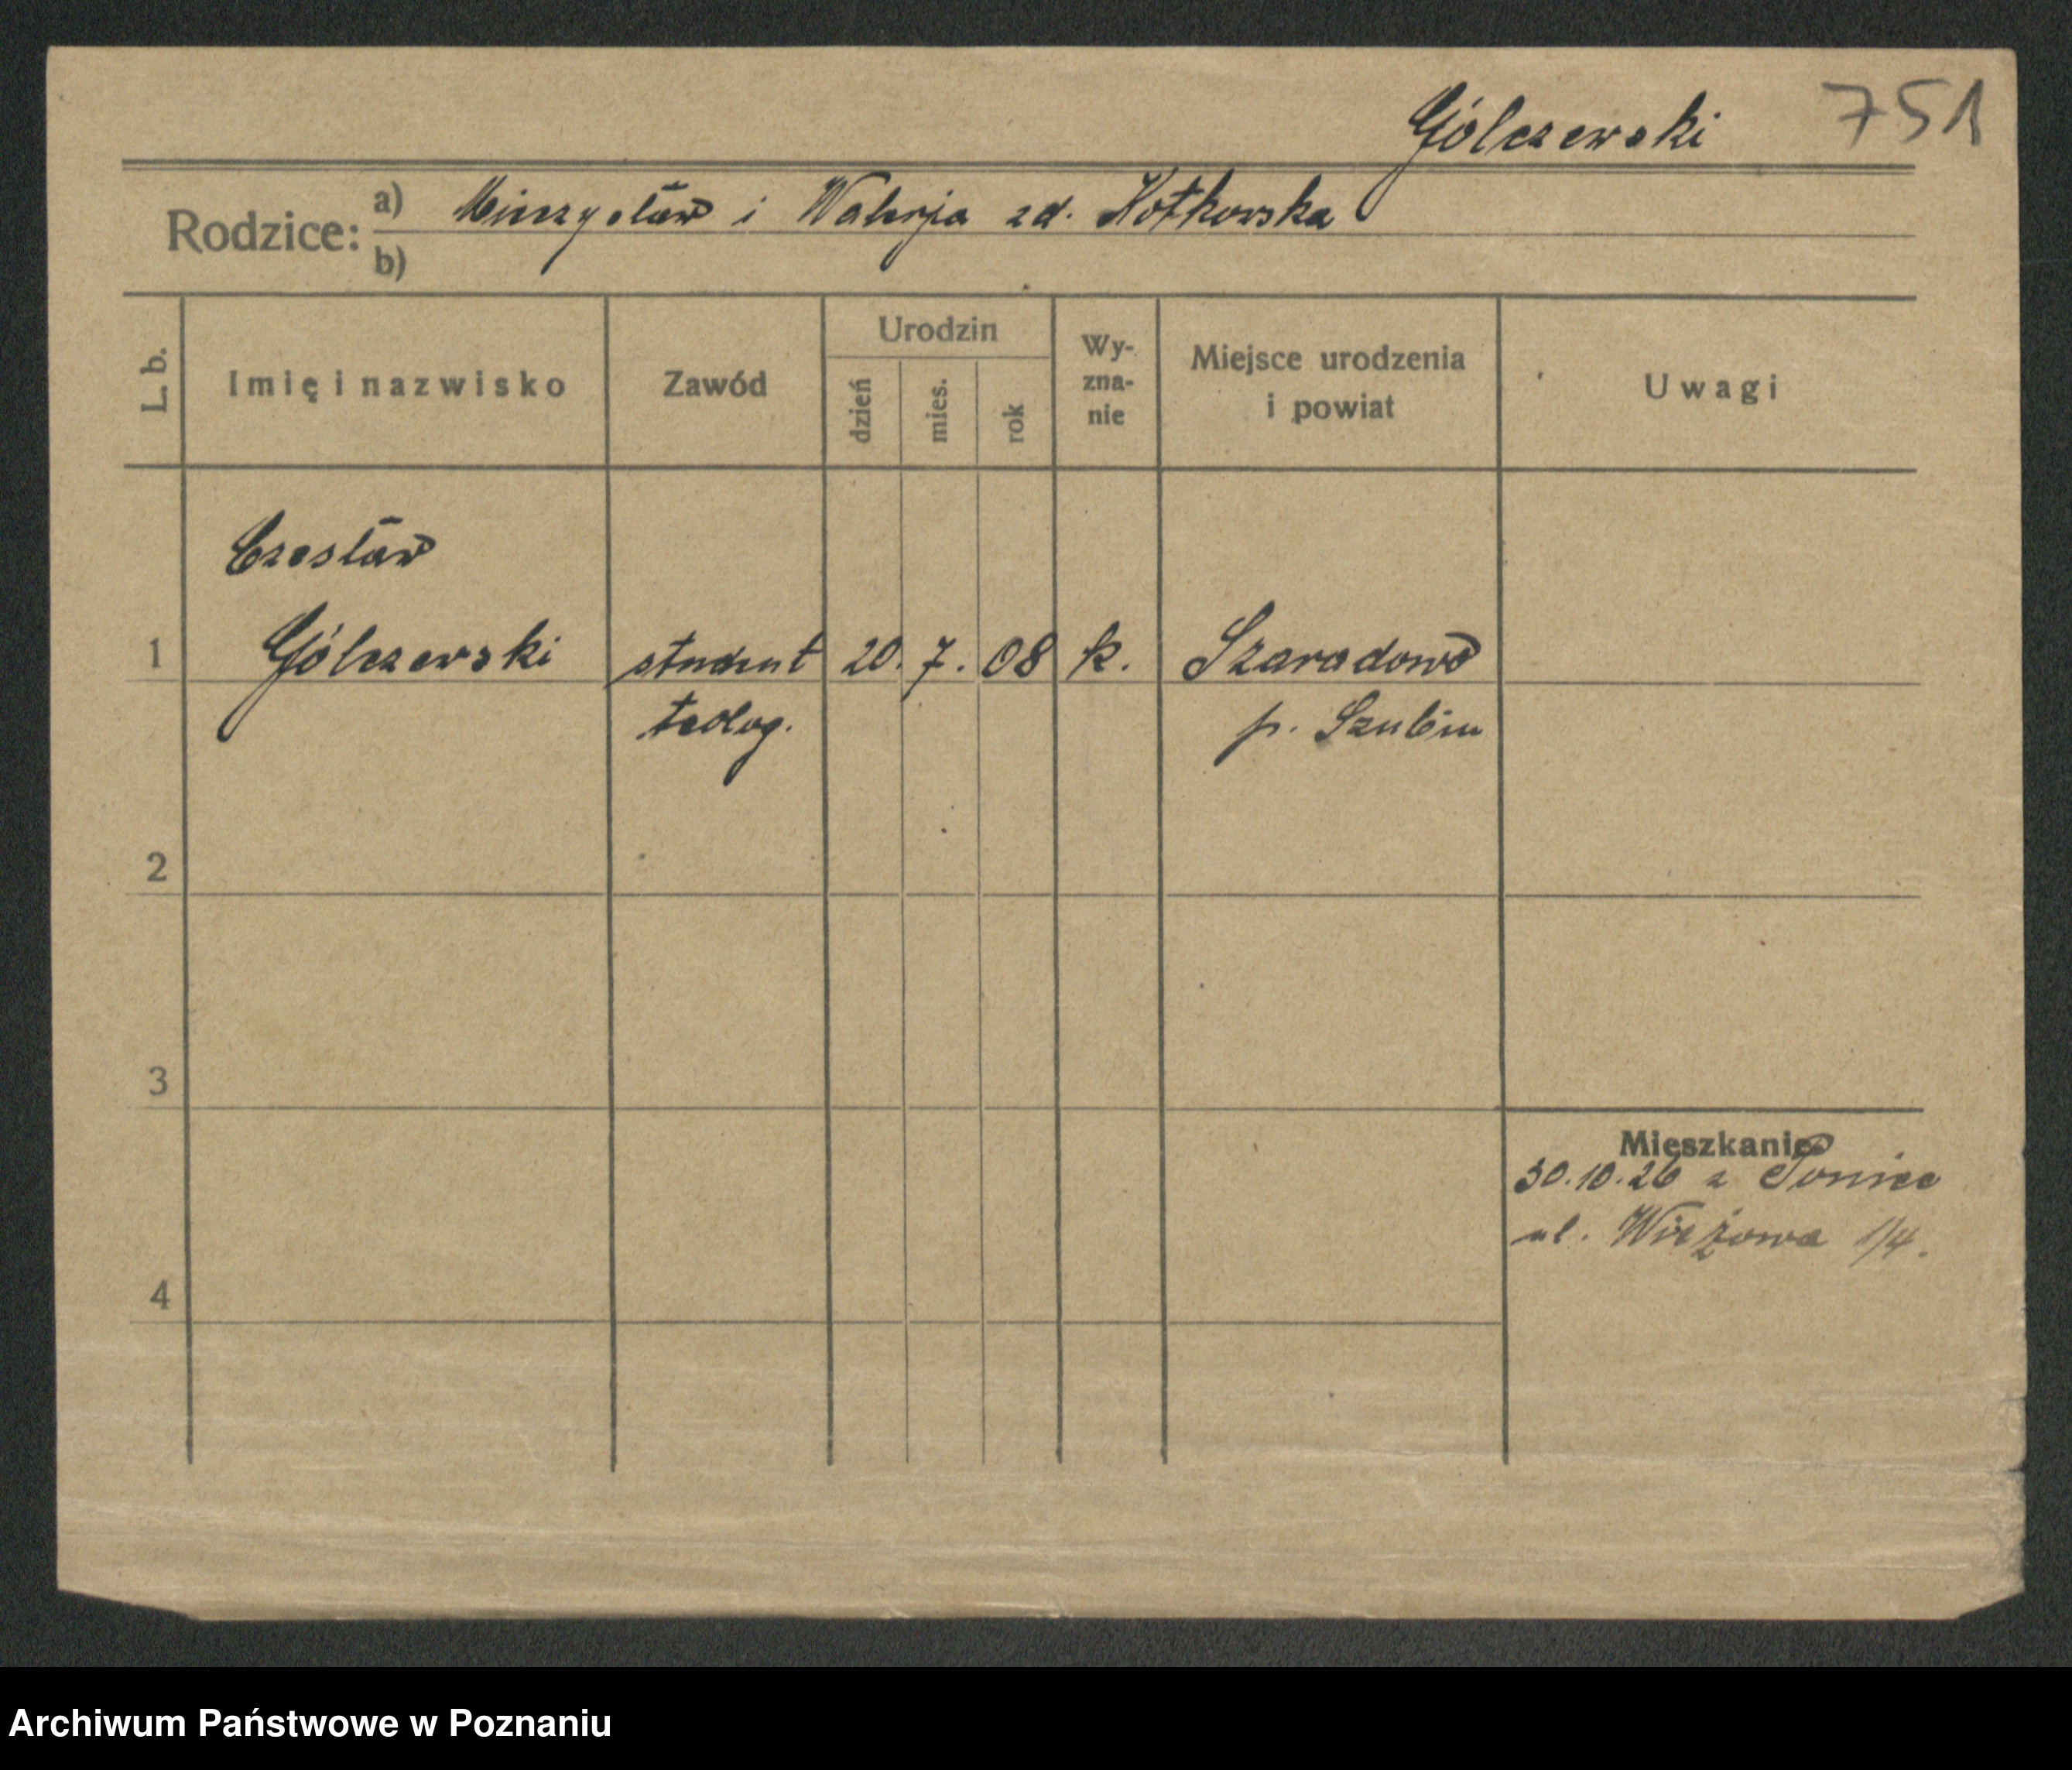 Gólczewski 751
Rodzice: a) Mieczysław i Walerja zd. Kotkowska
b)
L. b. Imię i nazwisko Zawód Urodzin dzień mies. rok Wy-zna-nie Miejsce urodzenia i powiat Uwagi
Czesław
1 Gólczewski student 20. 7. 08 k. Szaradowo
teolog. p. Szubin
2
3
Mieszkanie
30.10.26 z
ul. Wieżowa 1/4.
4
Archiwum Państwowe w Poznaniu